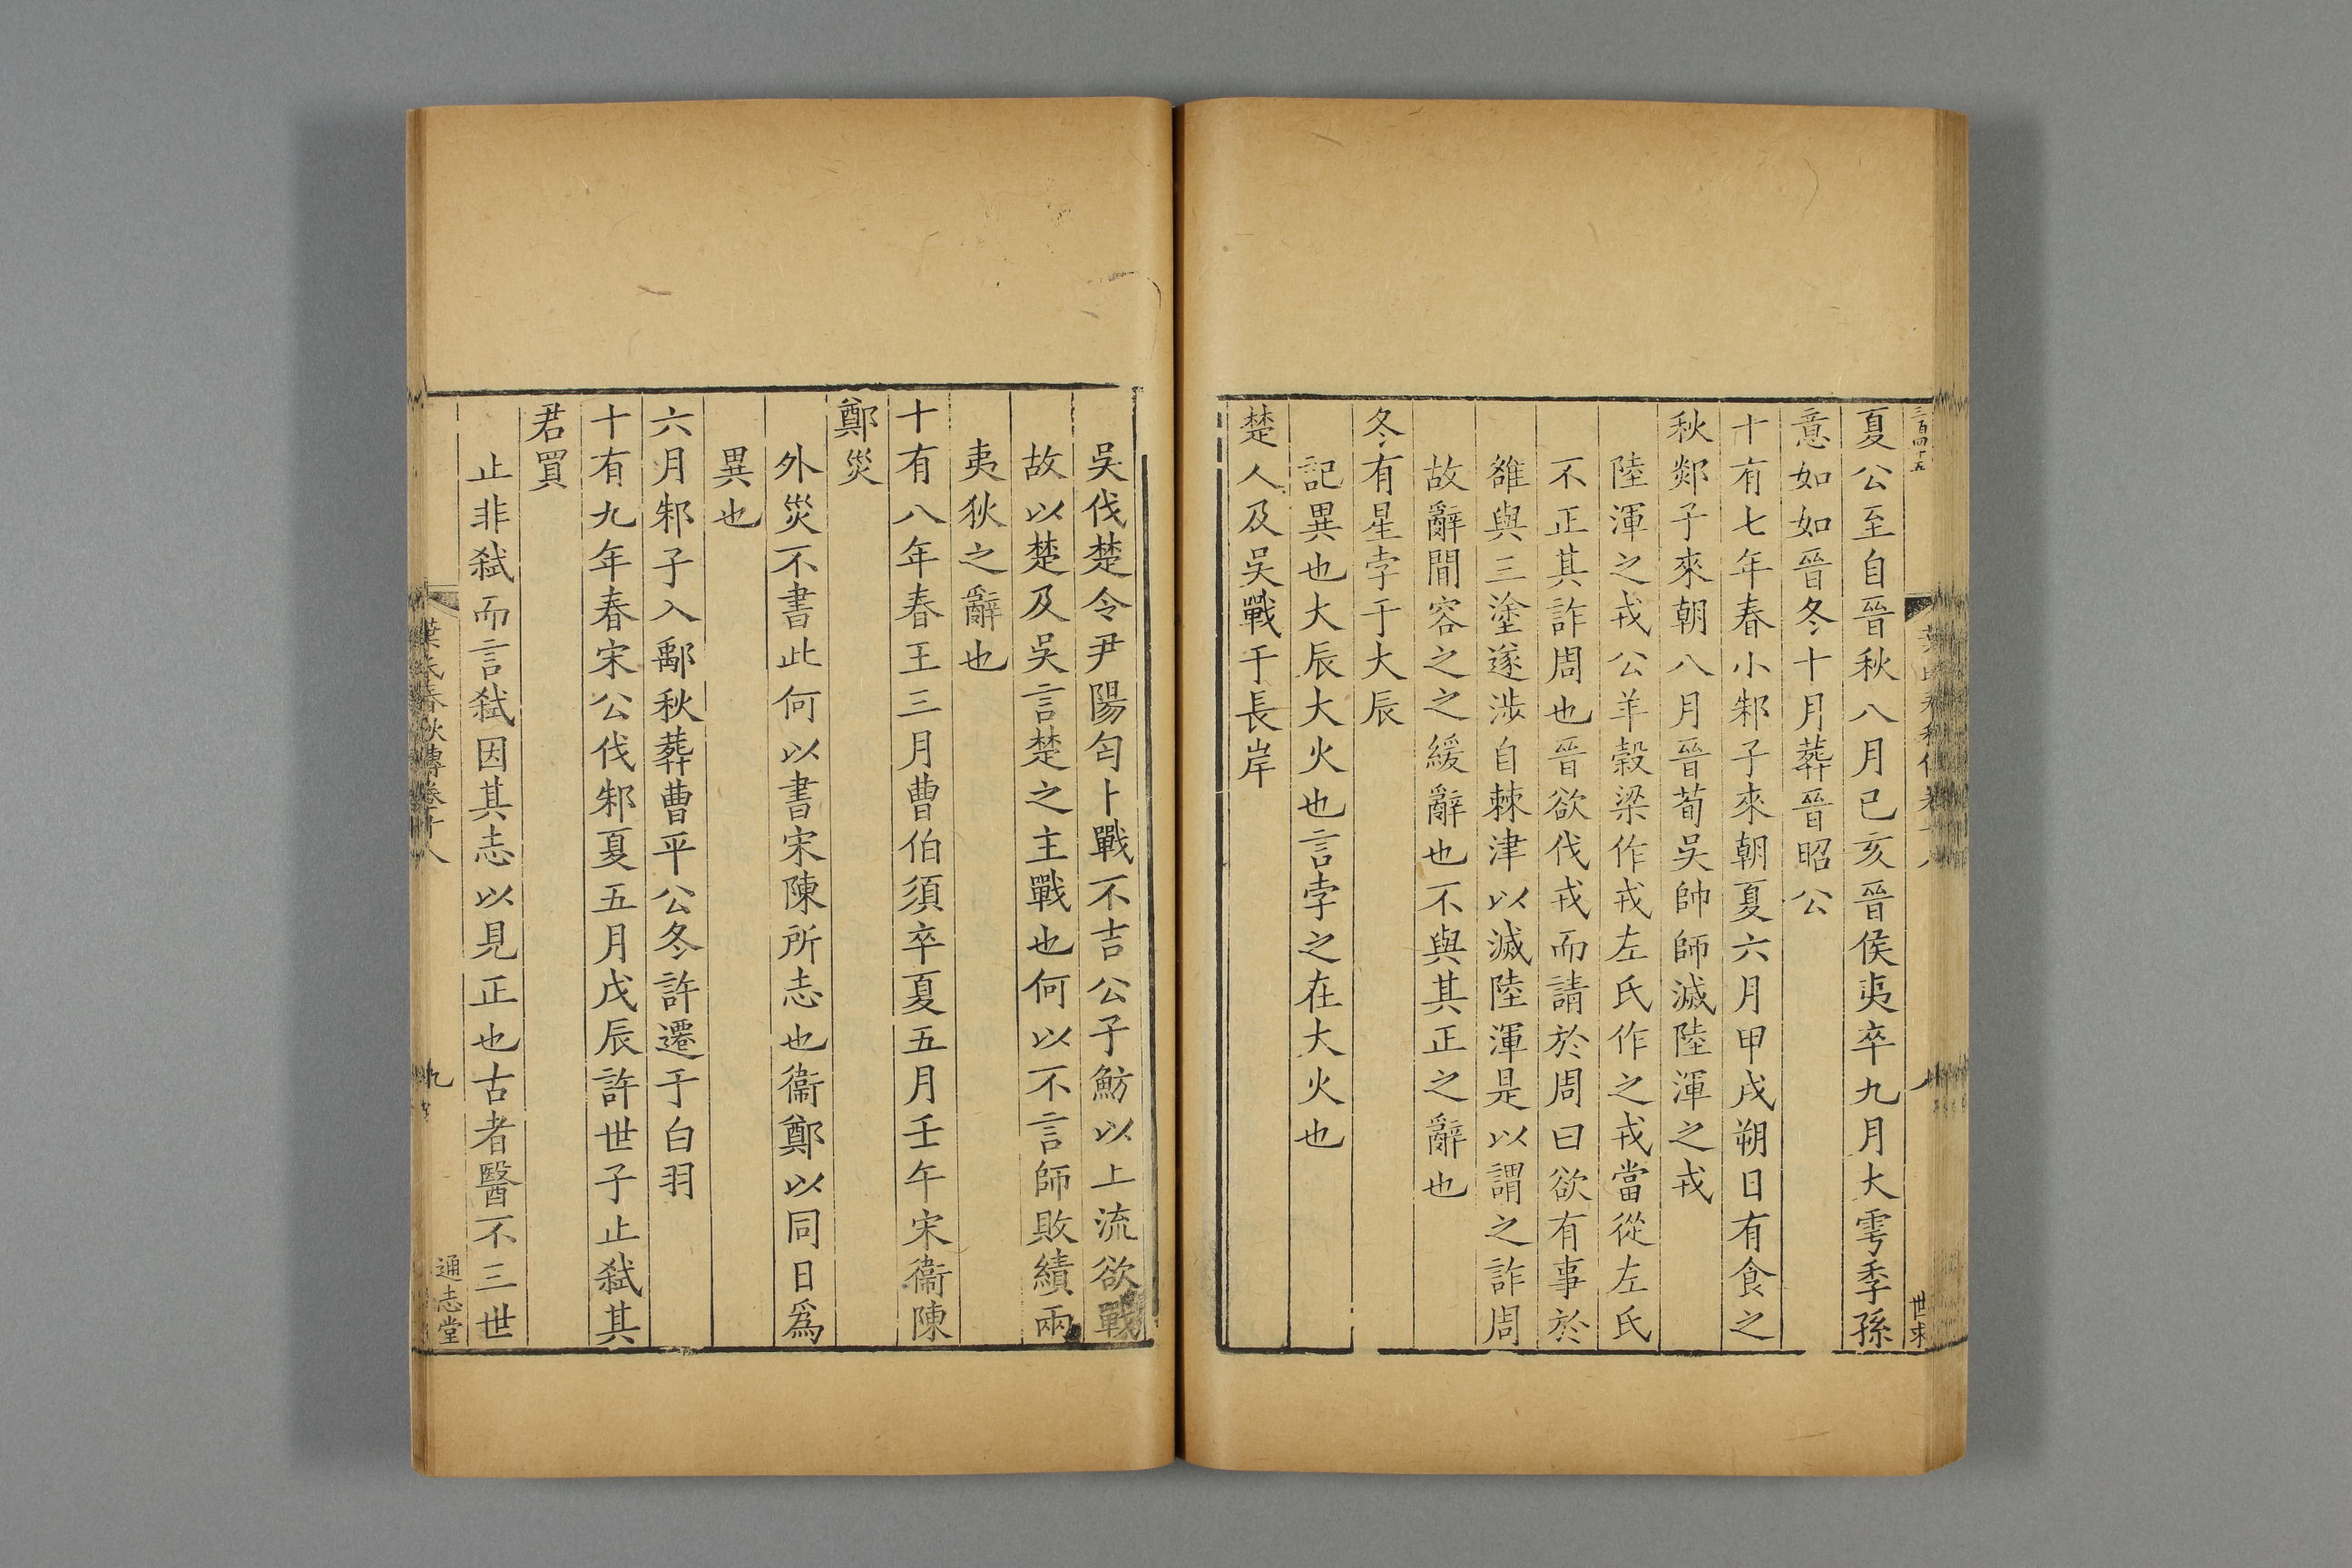 三百四十五
世求
夏公至自晉秋八月己亥晉侯夷卒九月大雩季孫
意如如晉冬十月葬晉昭公
十有七年春小邾子來朝夏六月甲戌朔日有食之
秋郯子來朝八月晉荀吳帥師滅陸渾之戎
陸渾之戎公羊穀梁作戎左氏作之戎當從左氏
不正其詐周也晉欲伐戎而請於周曰欲有事於
雒與三塗遂涉自棘津以滅陸渾是以謂之詐周
故辭間容之之緩辭也不與其正之辭也
冬有星孛于大辰
記異也大辰大火也言孛之在大火也
楚人及吳戰于長岸
吳伐楚令尹陽匄卜戰不吉公子魴以上流欲戰
故以楚及吳言楚之主戰也何以不言師敗績兩
夷狄之辭也
十有八年春王三月曹伯須卒夏五月壬午宋衞陳
鄭災
外災不書此何以書宋陳所志也衞鄭以同日爲
異也
六月邾子入鄅秋葬曹平公冬許遷于白羽
十有九年春宋公伐邾夏五月戊辰許世子止弑其
君買
止非弑而言弑因其志以見正也古者醫不三世
葉氏春秋傳卷十八
九
通志堂